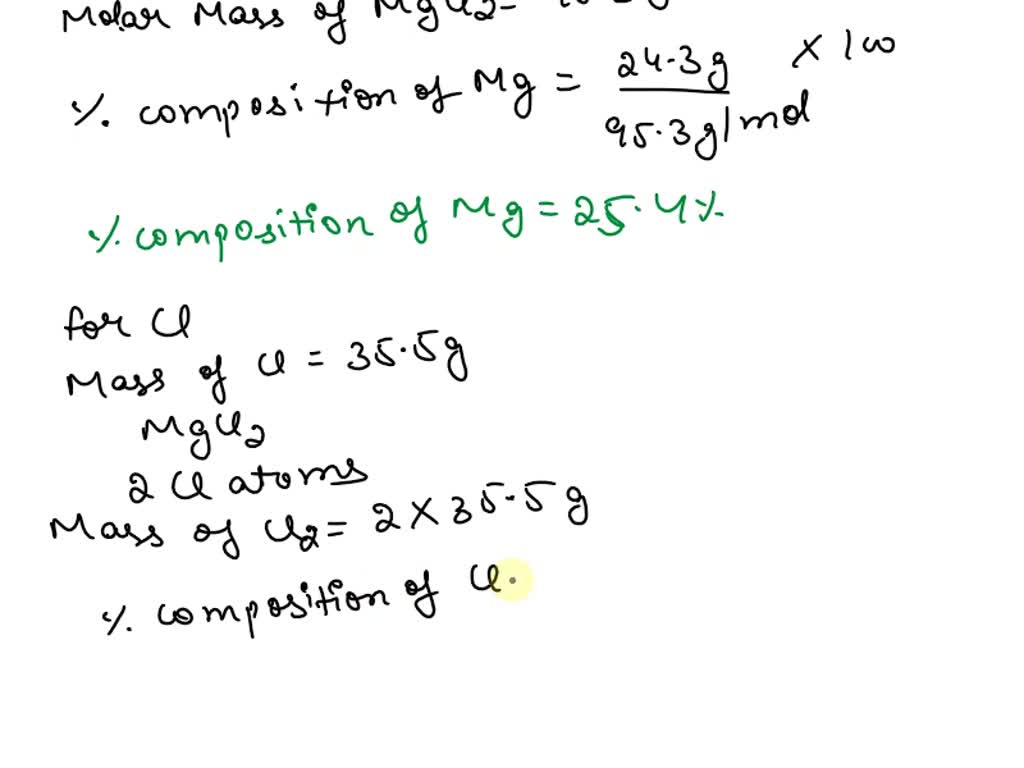 Molar Mass of MgCl2=
% composition of Mg = 24.3g / 95.3g/mol × 100
% composition of Mg = 25.4%
for Cl
Mass of Cl = 35.5g
MgCl2
2 Cl atoms
Mass of Cl2 = 2 × 35.5g
% composition of Cl